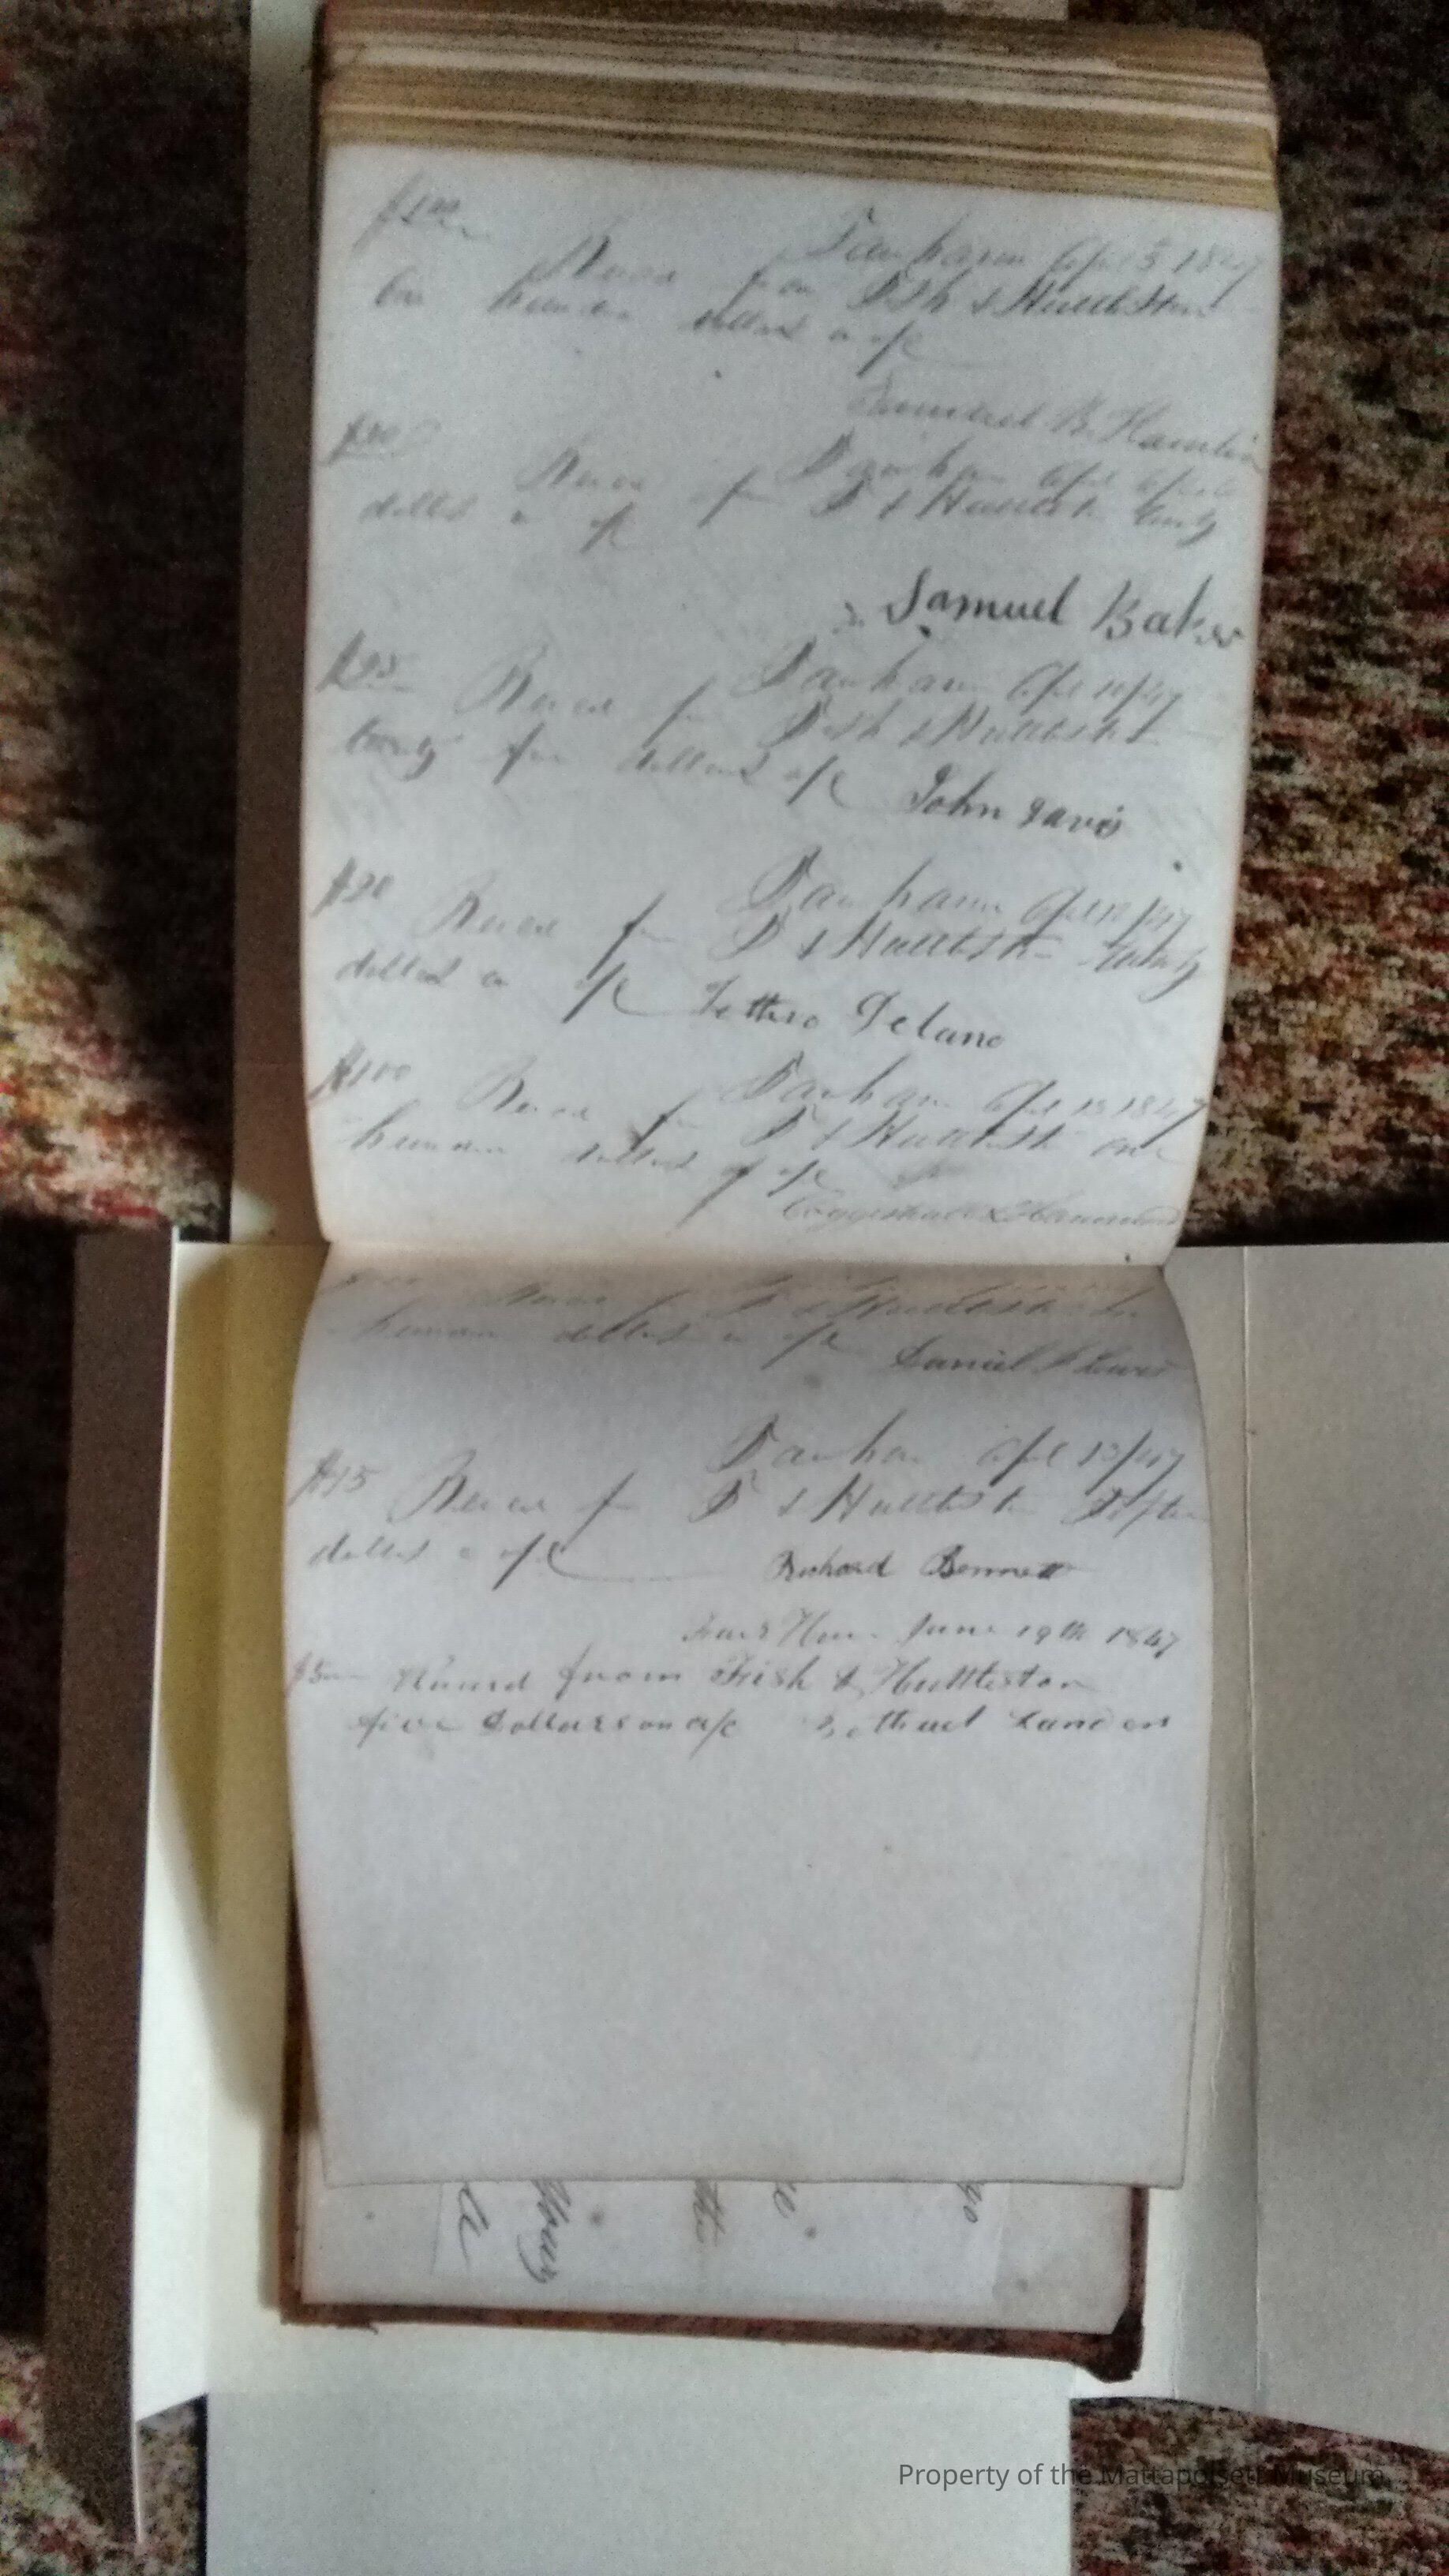 $100
Fairhaven April 5 1847
Received from Fish & Huttleston
One hundred dollars on a/c
Samuel B. Hamlin
$20
Fairhaven April
Received of F & Huttleston twenty
dollars on a/c
Samuel Baker
$25
Fairhaven April 10/47
Received from Fish & Huttleston
twenty five dollars a/c
John Davis
$20
Fairhaven April 12/47
Received from F & Huttleston twenty
dollars on a/c Jethro Delano
$100
Fairhaven April 13 1847
Received from F & Huttleston one
hundred dollars a/c
Received from F & Huttleston
hundred dollars on a/c
Daniel Lewis
Fairhaven April 13/47
$15 Received from F & Huttleston Fifteen
dollars on a/c
Richard Bennett
Fair Haven June 19th 1847
$5 Received from Fish & Huttleston
five Dollars on a/c Landers
Property of the Mattapoisett Museum